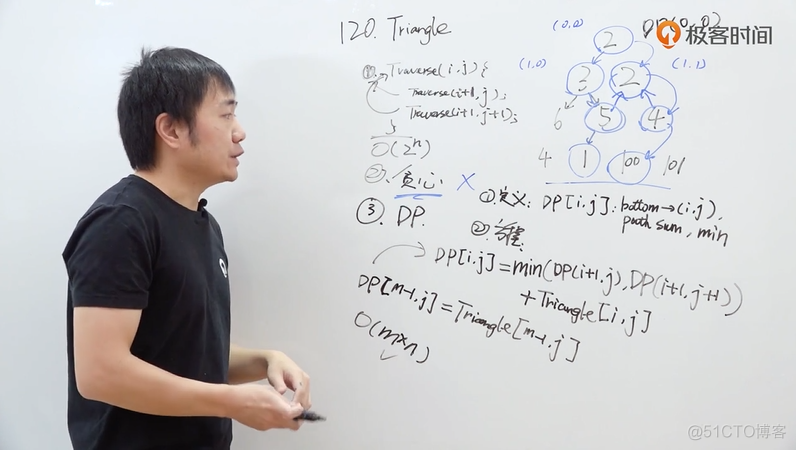 120. Triangle
(0,0)
DP(0,0)
极客时间
2
(1,0)
3
2
(1,1)
6
5
4
4
1
100
101
①. Traverse(i,j){
Traverse(i+1,j);
Traverse(i+1,j+1);
}
O(2^n)
②. 贪心 X
③. DP.
①定义: DP[i,j]: bottom→(i,j),
path sum, min
②.方程:
DP[i,j]=min(DP(i+1,j),DP(i+1,j+1))
+Triangle[i,j]
DP[m-1,j]=Triangle[m-1,j]
O(m×n)
@51CTO博客